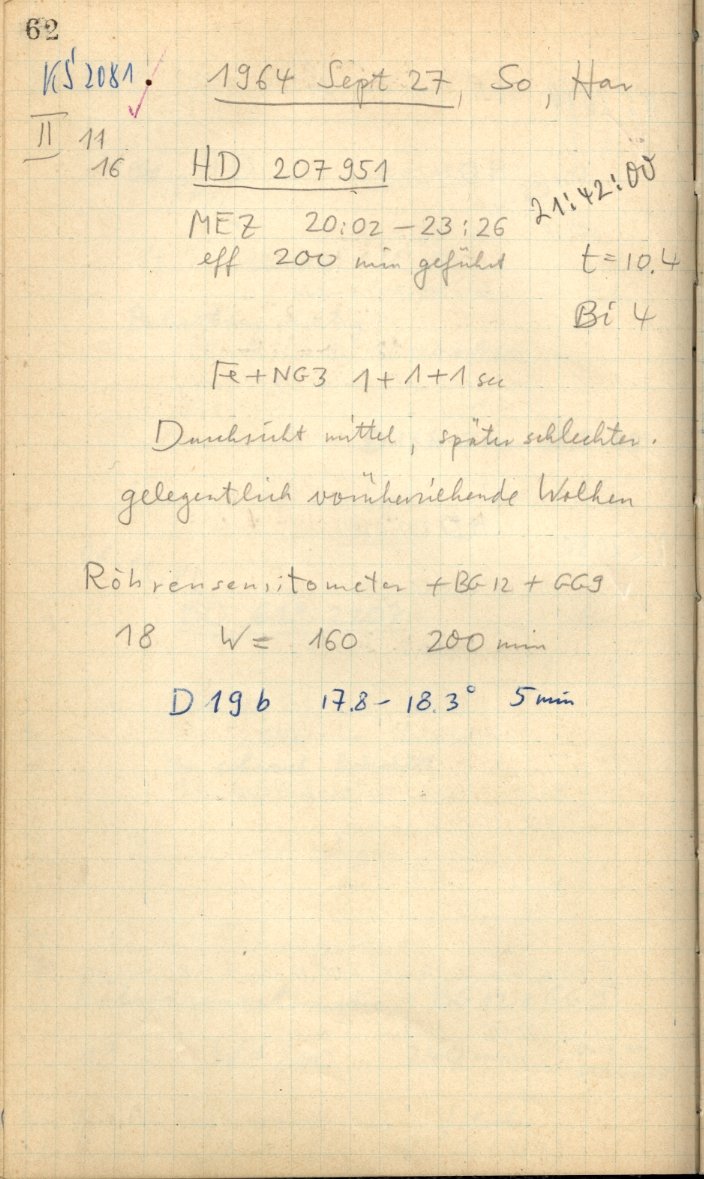 62
KŚ 2081. 1964 Sept 27, So, Har
II 11
16
HD 207951
21:42:00
MEZ 20:02 – 23:26
eff 200 min geführt t = 10.4
Bi 4
Fe + NG3 1 + 1 + 1 sec
Durchsicht mittel, später schlechter.
gelegentlich vorüberziehende Wolken
Röhrensensitometer + BG 12 + GG9
18 W = 160 200 min
D 19 b 17.8 – 18.3° 5 min